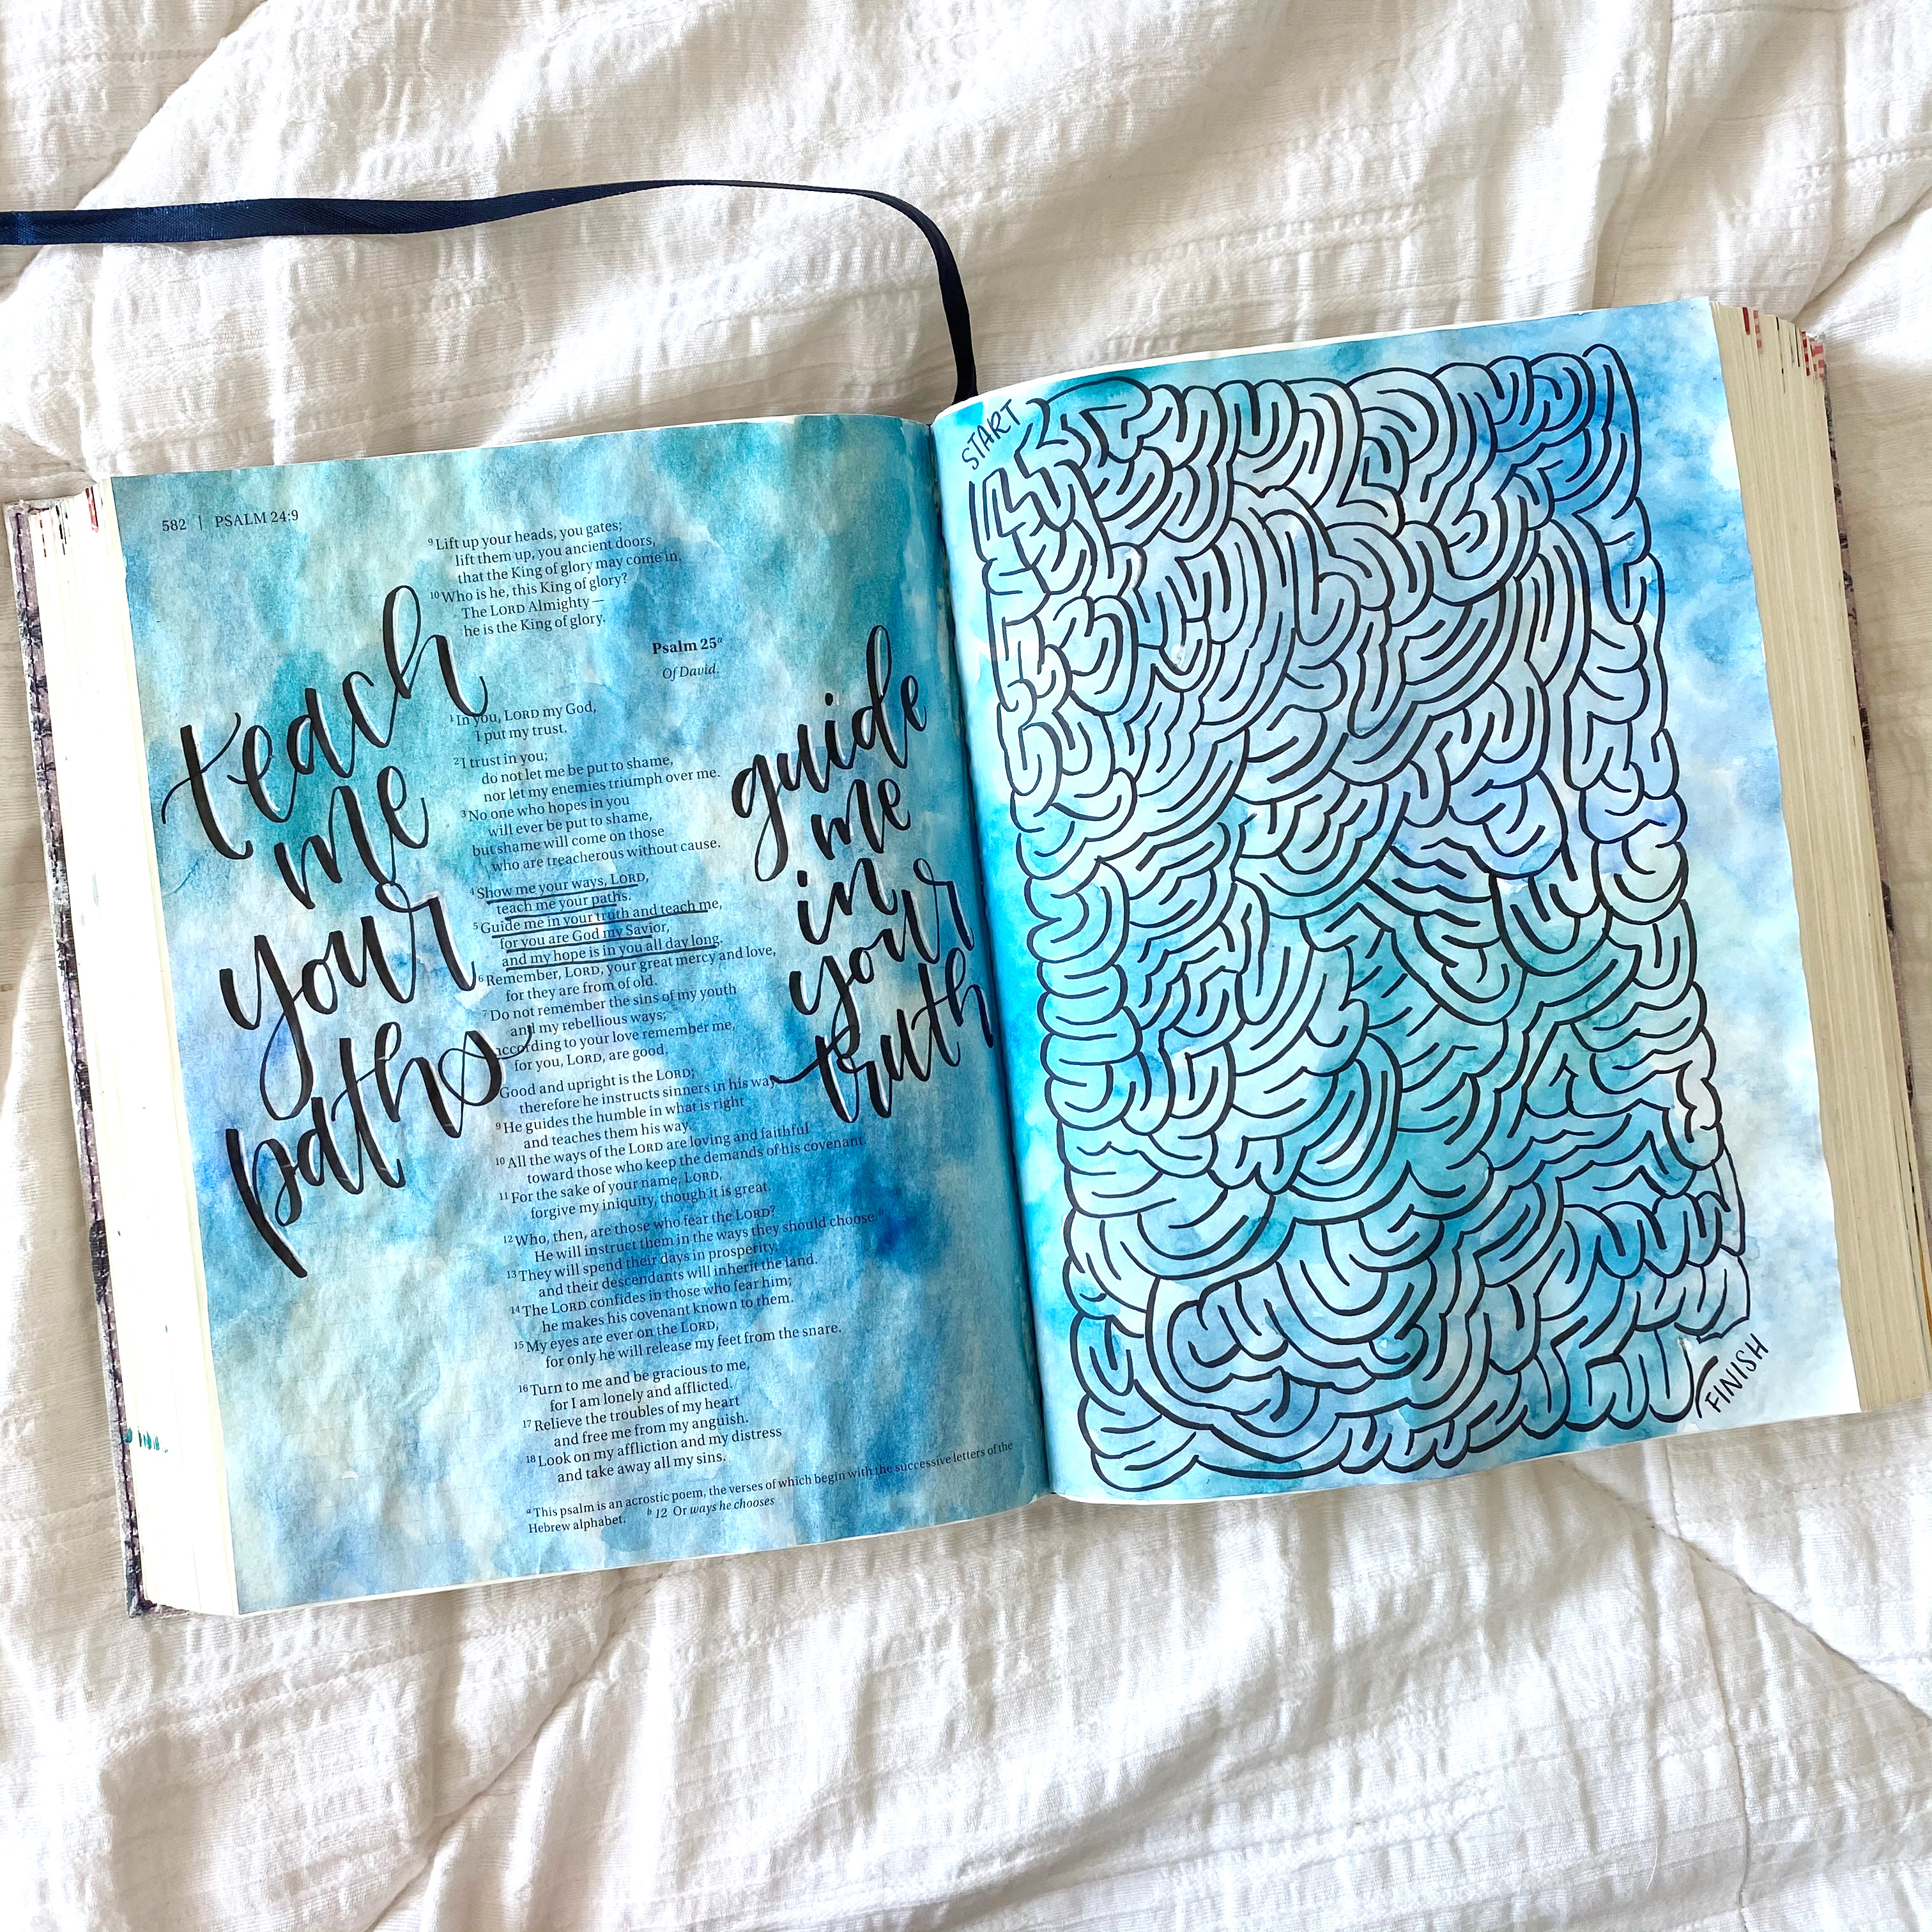 582 | PSALM 24:9
9 Lift up your heads, you gates;
lift them up, you ancient doors,
that the King of glory may come in.
10 Who is he, this King of glory?
The LORD Almighty —
he is the King of glory.
Psalm 25a
Of David.
1 In you, LORD my God,
I put my trust.
2 I trust in you;
do not let me be put to shame,
nor let my enemies triumph over me.
3 No one who hopes in you
will ever be put to shame,
but shame will come on those
who are treacherous without cause.
4 Show me your ways, LORD,
teach me your paths.
5 Guide me in your truth and teach me,
for you are God my Savior,
and my hope is in you all day long.
6 Remember, LORD, your great mercy and love,
for they are from of old.
7 Do not remember the sins of my youth
and my rebellious ways;
according to your love remember me,
for you, LORD, are good.
Good and upright is the LORD;
therefore he instructs sinners in his ways.
9 He guides the humble in what is right
and teaches them his way.
10 All the ways of the LORD are loving and faithful
toward those who keep the demands of his covenant.
11 For the sake of your name, LORD,
forgive my iniquity, though it is great.
12 Who, then, are those who fear the LORD?
He will instruct them in the ways they should choose.b
13 They will spend their days in prosperity,
and their descendants will inherit the land.
14 The LORD confides in those who fear him;
he makes his covenant known to them.
15 My eyes are ever on the LORD,
for only he will release my feet from the snare.
16 Turn to me and be gracious to me,
for I am lonely and afflicted.
17 Relieve the troubles of my heart
and free me from my anguish.
18 Look on my affliction and my distress
and take away all my sins.
a This psalm is an acrostic poem, the verses of which begin with the successive letters of the
Hebrew alphabet. b 12 Or ways he chooses
teach
me
your
paths
guide
me
in
your
truth
START
FINISH